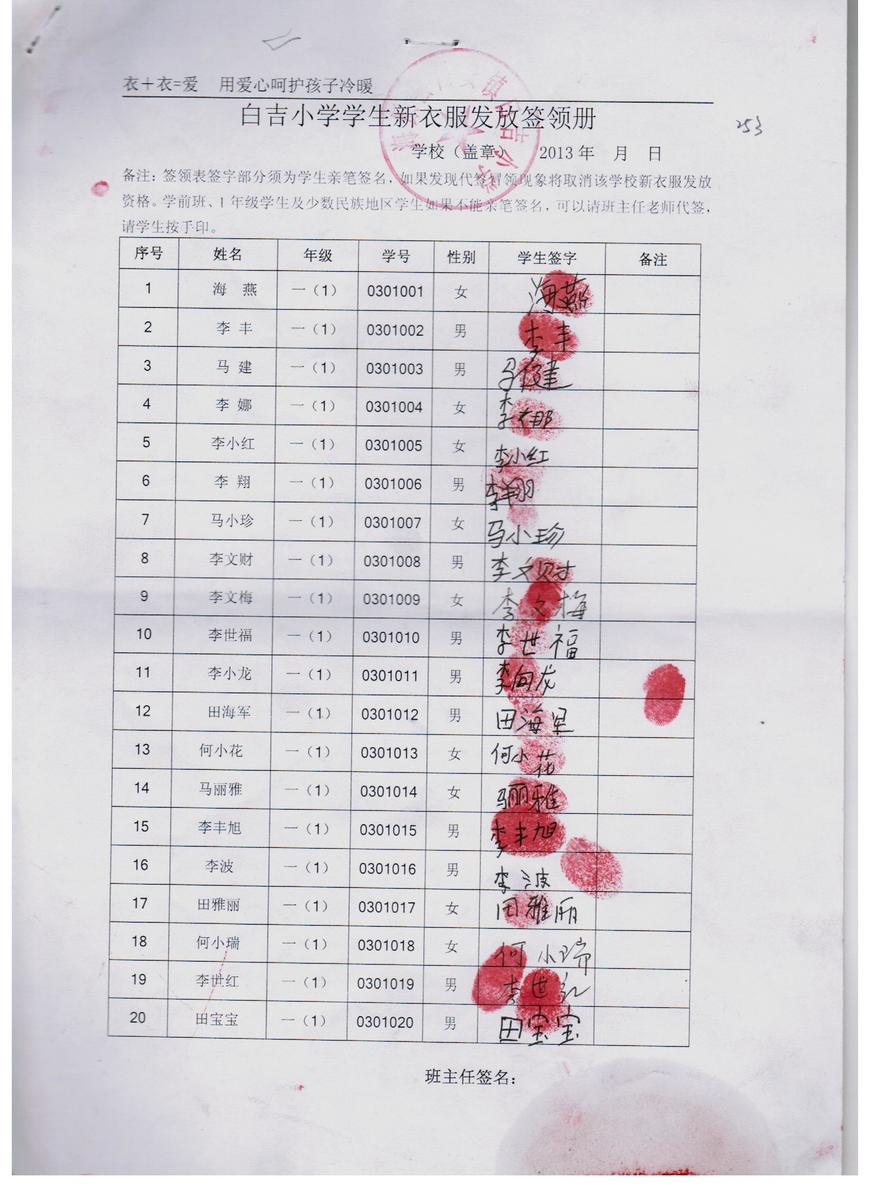 衣+衣=爱 用爱心呵护孩子冷暖
白吉小学学生新衣服发放签领册
253
学校（盖章） 2013年 月 日
备注：签领表签字部分须为学生亲笔签名，如果发现代签冒领现象将取消该学校新衣服发放
资格。学前班、1年级学生及少数民族地区学生如果不能亲笔签名，可以请班主任老师代签，
请学生按手印。
序号 姓名 年级 学号 性别 学生签字 备注
1 海 燕 一（1） 0301001 女 海燕
2 李 丰 一（1） 0301002 男 李丰
3 马 建 一（1） 0301003 男 马健
4 李 娜 一（1） 0301004 女 李娜
5 李小红 一（1） 0301005 女 李小红
6 李 翔 一（1） 0301006 男 李翔
7 马小珍 一（1） 0301007 女 马小珍
8 李文财 一（1） 0301008 男 李文财
9 李文梅 一（1） 0301009 女 李文梅
10 李世福 一（1） 0301010 男 李世福
11 李小龙 一（1） 0301011 男
12 田海军 一（1） 0301012 男 田海军
13 何小花 一（1） 0301013 女 何小花
14 马丽雅 一（1） 0301014 女 马丽雅
15 李丰旭 一（1） 0301015 男 李丰旭
16 李波 一（1） 0301016 男 李波
17 田雅丽 一（1） 0301017 女 田雅丽
18 何小瑞 一（1） 0301018 女 何小瑞
19 李世红 一（1） 0301019 男 李世红
20 田宝宝 一（1） 0301020 男 田宝宝
班主任签名：